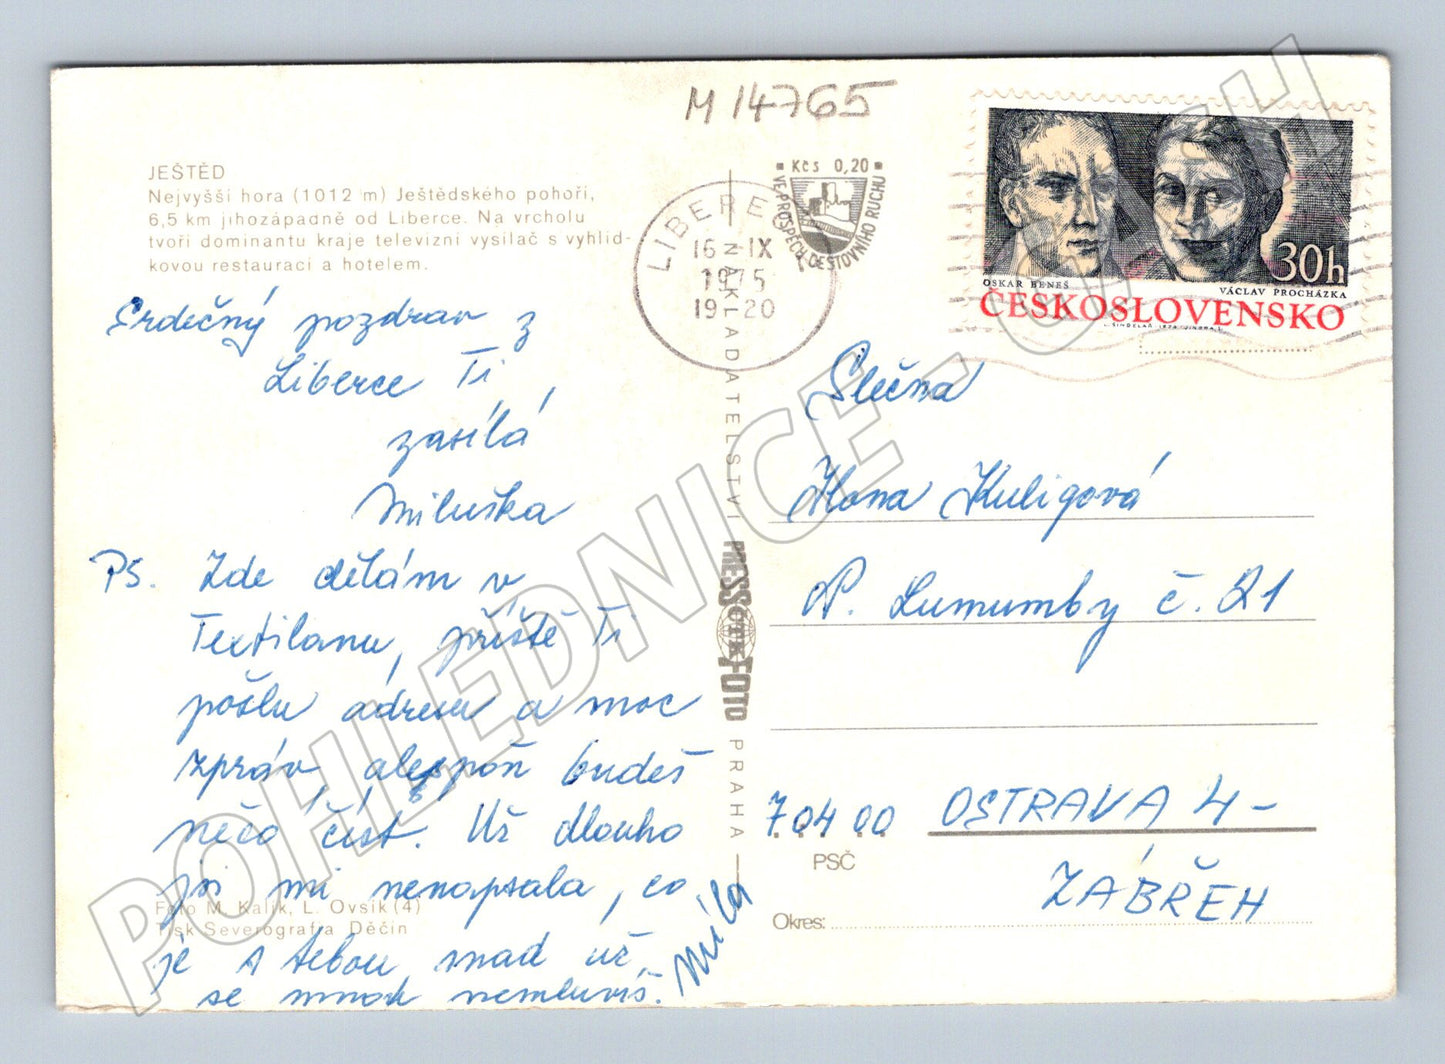 M 14765
JEŠTĚD
Nejvyšší hora (1012 m) Ještědského pohoří,
6,5 km jihozápadně od Liberce. Na vrcholu
tvoří dominantu kraje televizní vysílač s vyhlíd-
kovou restaurací a hotelem.
Srdečný pozdrav z
Liberce Ti
zasílá
Miluška
PS. Zde dělám v
Textilanu, příště Ti
pošlu adresu a moc
zpráv alespoň budeš
něco číst. Už dlouho
jsi mi nenapsala, co
je s tebou, snad už
se mnou nemluvíš.
Míla
Foto M. Kalík, L. Ovsík (4)
Tisk Severografia Děčín
NAKLADATELSTVÍ PRESSFOTO PRAHA
LIBEREC
16 IX
1975
19 20
Kčs 0,20
VE PROSPĚCH CESTOVNÍHO RUCHU
30h
OSKAR BENEŠ
VÁCLAV PROCHÁZKA
ČESKOSLOVENSKO
Slečna
Ilona Kuligová
P. Lumumby č. 21
704 00 OSTRAVA 4-
PSČ
ZÁBŘEH
Okres:
POHLEDNICE - CASH